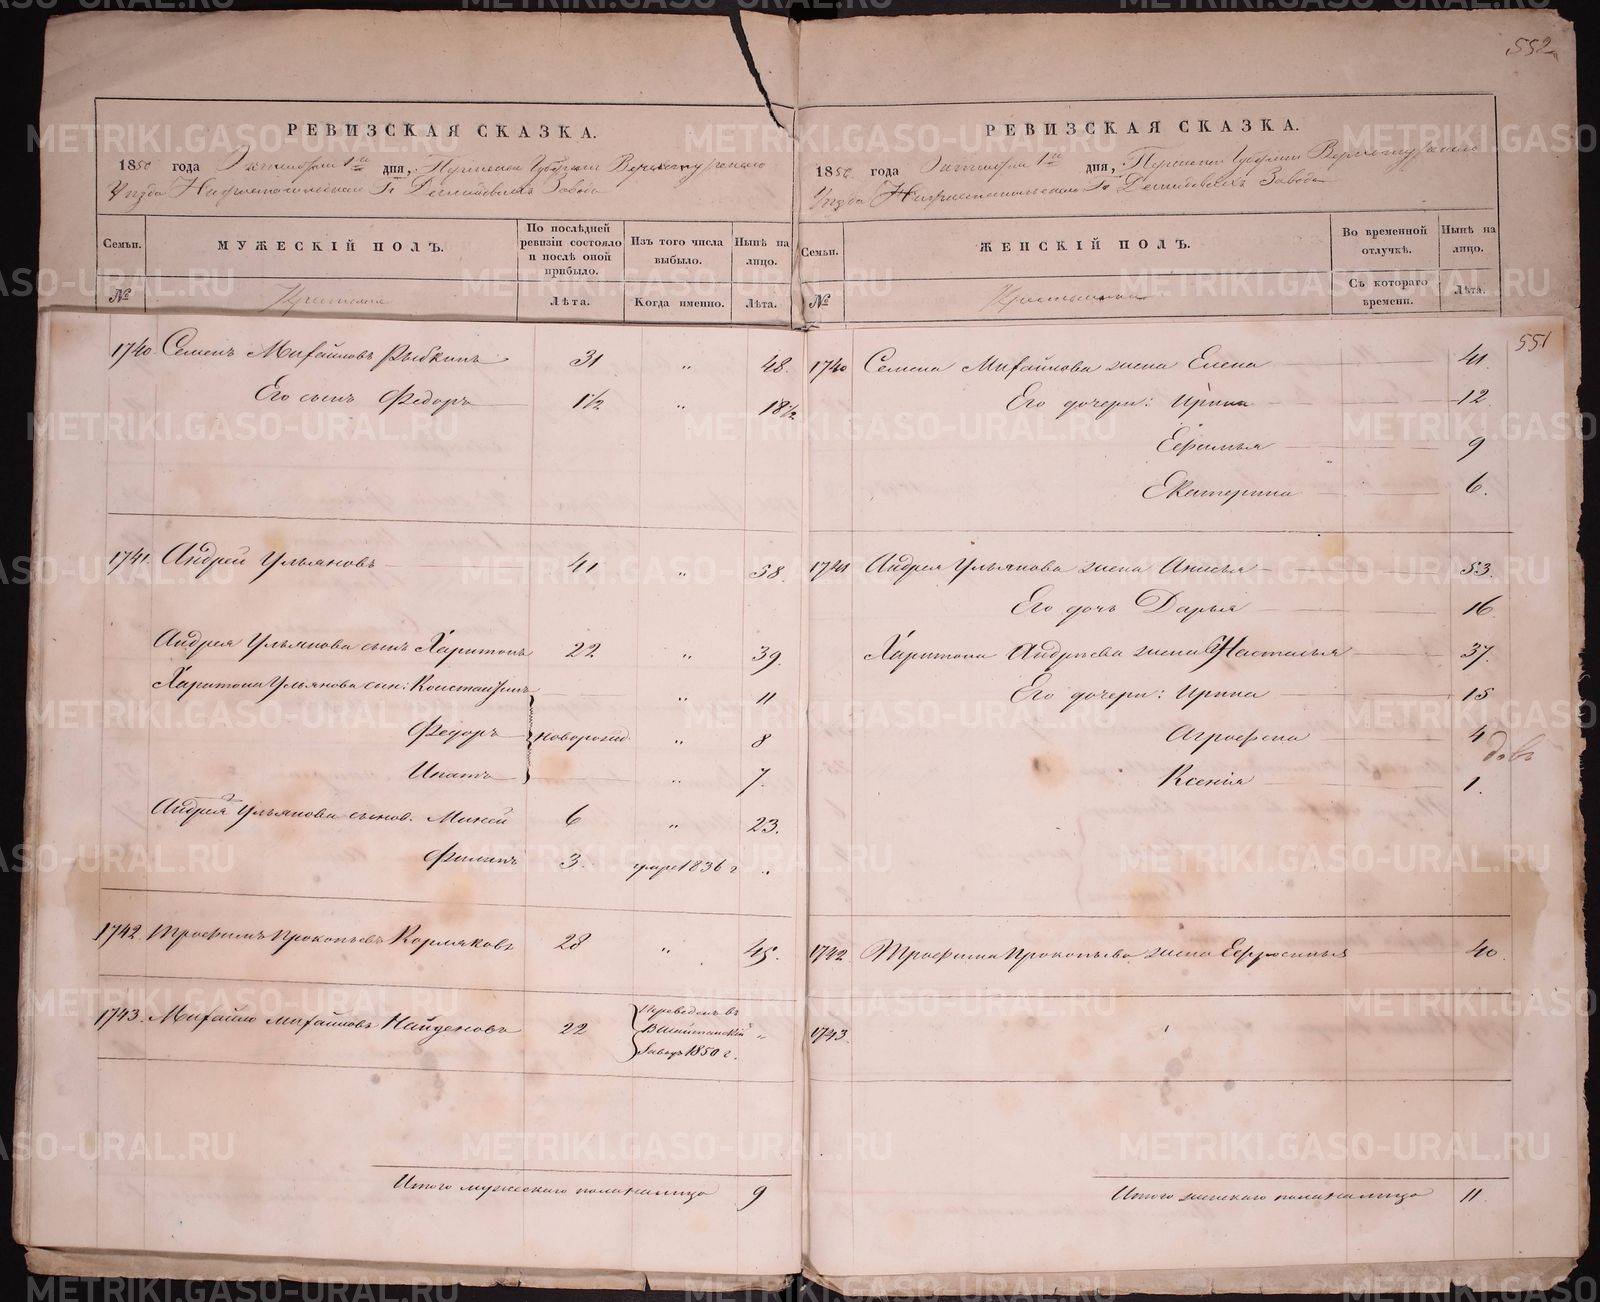 552
РЕВИЗСКАЯ СКАЗКА.
1850 года Октября 1го дня, Пермской Губернии Верхотурскаго
Уезда Нижнетагильскаго Гг Демидовыхъ Завода
Семьи. МУЖЕСКІЙ ПОЛЪ. По послѣдней ревизіи состояло и послѣ оной прибыло. Изъ того числа выбыло. Нынѣ на лицо.
№ Крестьяне Лѣта. Когда именно. Лѣта.
1740. Семенъ Михайловъ Рыбкинъ 31 „ 48.
Его сынъ Федоръ 1 1/2 „ 18 1/2
1741. Андрей Ульяновъ 41 „ 58.
Андрея Ульянова сынъ Харитонъ 22 „ 39.
Харитона Ульянова сын: Константинъ „ 11
Федоръ новорожд. „ 8
Ипатъ „ 7.
Андрея Ульянова сынов. Миней 6 „ 23.
Филипъ 3. умре 1836 г „
1742. Трофимъ Прокопьевъ Кормяковъ 28 „ 45.
1743. Михайло Михайловъ Найденовъ 22 Переведенъ въ
В Шайтанскій „
Заводъ 1850 г.
Итого мужескаго пола налицо 9
РЕВИЗСКАЯ СКАЗКА.
1850 года Октября 1го дня, Пермской Губернии Верхотурскаго
Уезда Нижнетагильскаго Гг Демидовыхъ Завода
Семьи. ЖЕНСКІЙ ПОЛЪ. Во временной отлучкѣ. Нынѣ на лицо.
№ Крестьянки Съ котораго времени. Лѣта.
551
1740 Семена Михайлова жена Елена 41.
Его дочери: Ирина 12
Ефимья 9
Екатерина 6.
1741 Андрея Ульянова жена Анисья 53.
Его дочь Дарья 16
Харитона Андреева жена Настасья 37.
Его дочери: Ирина 15
Агрофена 4
Ксенія 1.
1742 Трофима Прокопьева жена Ефросинья 40.
1743.
Итого женскаго пола налицо 11.
METRIKI.GASO-URAL.RU